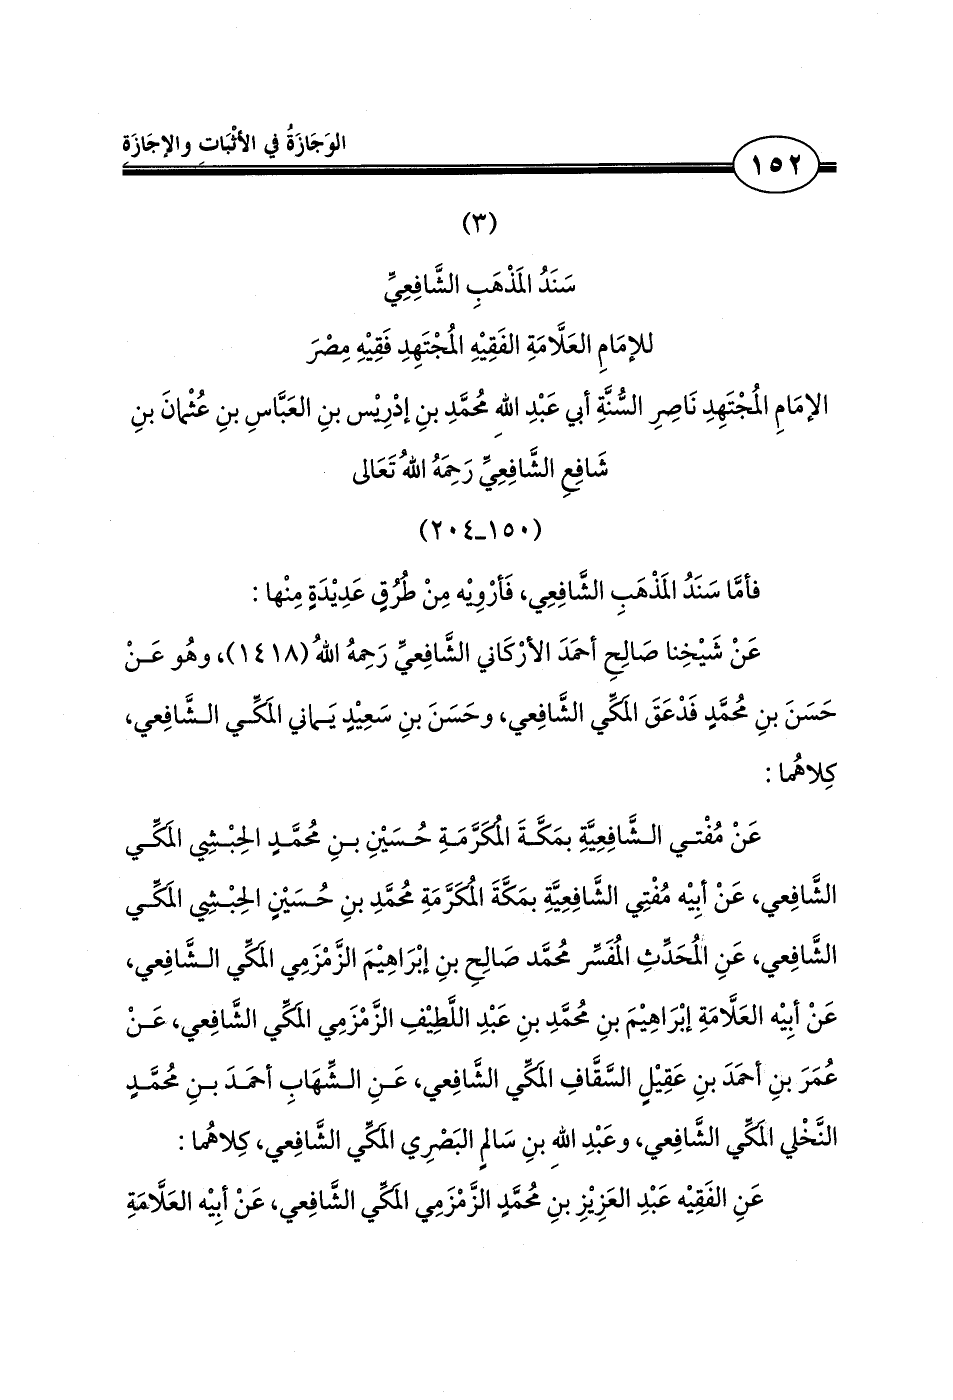 الوَجَازَةُ في الأثْبَاتِ والإجَازَةِ
١٥٢
(٣)
سَنَدُ المَذْهَبِ الشَّافِعِيِّ
للإمَامِ العَلَّامَةِ الفَقِيْهِ المُجْتَهِدِ فَقِيْهِ مِصْرَ
الإمَامِ المُجْتَهِدِ نَاصِرِ السُّنَّةِ أبي عَبْدِ اللهِ مُحمَّدِ بنِ إدْرِيْس بنِ العَبَّاسِ بنِ عُثْمانَ بنِ
شَافِعِ الشَّافِعِيِّ رَحِمَهُ اللهُ تَعَالى
(١٥٠ـ٢٠٤)
فأمَّا سَنَدُ المَذْهَبِ الشَّافِعِي، فَأرْوِيْه مِنْ طُرُقٍ عَدِيْدَةٍ مِنْها :
عَنْ شَيْخِنا صَالِحِ أحمَدَ الأرْكَاني الشَّافِعيِّ رَحِمهُ اللهُ (١٤١٨)، وهُو عَـنْ
حَسَنَ بنِ مُحمَّدٍ فَدْعَقَ المَكِّي الشَّافِعي، وحَسَنَ بنِ سَعِيْدٍ يَـماني المَكِّـي الـشَّافِعي،
كِلاهُما :
عَنْ مُفْتـي الـشَّافِعِيَّةِ بمَكَّـةَ المُكَرَّمَـةِ حُـسَيْنِ بـنِ مُحمَّـدٍ الحِبْـشِي المَكِّـي
الشَّافِعي، عَنْ أبِيْه مُفْتِي الشَّافِعِيَّةِ بمَكَّةَ المُكَرَّمَةِ مُحمَّدِ بنِ حُـسَيْنٍ الحِبْـشِي المَكِّـي
الشَّافِعي، عَنِ المُحَدِّثِ المُفَسِّر مُحمَّد صَالِحِ بنِ إبْرَاهِيْمَ الزَّمْزَمِي المَكِّي الـشَّافِعي،
عَنْ أبِيْه العَلَّامَةِ إبْرَاهِيْمَ بنِ مُحمَّدِ بنِ عَبْدِ اللَّطِيْفِ الزَّمْزَمِي المَكِّي الشَّافِعي، عَـنْ
عُمَرَ بنِ أحمَدَ بنِ عَقِيْلٍ السَّقَّافِ المَكِّي الشَّافِعي، عَـنِ الـشِّهَابِ أحمَـدَ بـنِ مُحمَّـدٍ
النَّخْلي المَكِّي الشَّافِعي، وعَبْدِ اللهِ بنِ سَالمٍ البَصْرِي المَكِّي الشَّافِعي، كِلاهُما :
عَنِ الفَقِيْه عَبْدِ العَزِيْزِ بنِ مُحمَّدٍ الزَّمْزَمِي المَكِّي الشَّافِعي، عَنْ أبِيْه العَلَّامَةِ